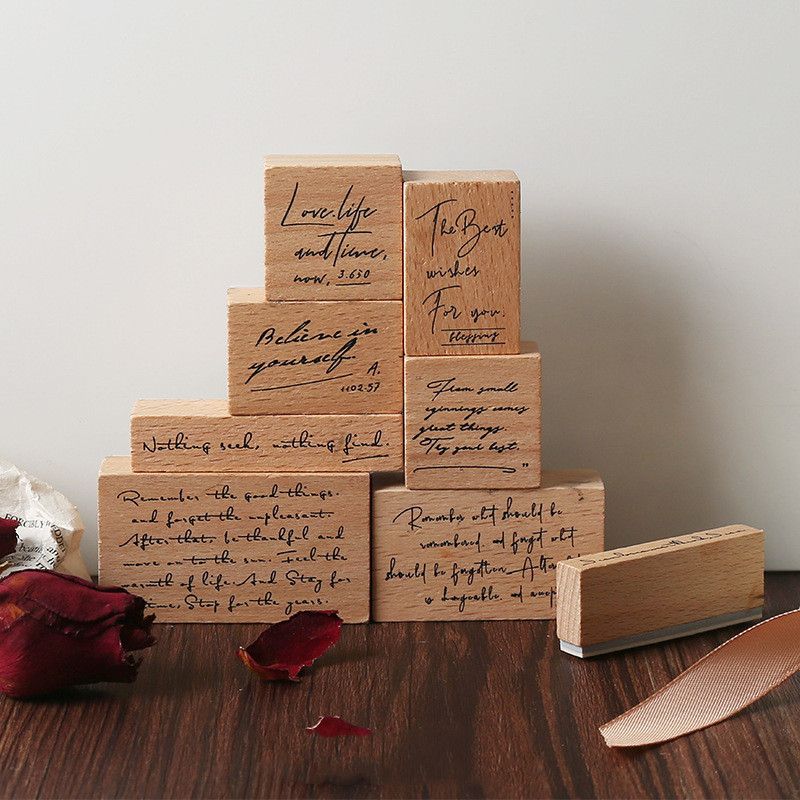 Love.life
and Time,
now, 3.650
The Best
wishes
For you.
blessing
Believe in
yourself.
A.
1102.57
From small
eginnings comes
great things.
Try your best.
”
Nothing seek, nothing find.
Remember the good things.
and forget the unpleasant.
After that. be thankful and
move on to the sun. Feel the
warmth of life. And Stay for
time, Stop for the years.
Remember what should be
remembered, and forget what
should be forgotten. Alter
is changeable. and accep
FORCIBLY